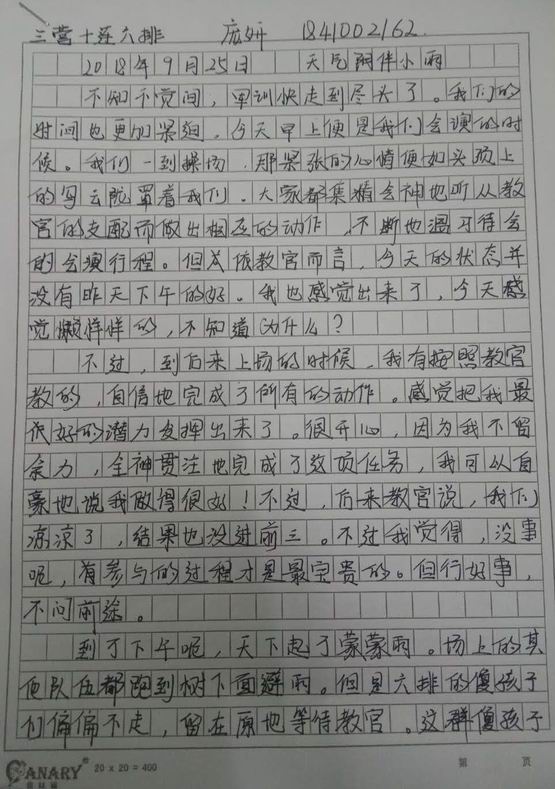 三营十连六排 庞妍 1841002162.
2018年9月25日 天气阴伴小雨
不知不觉间，军训快走到尽头了。我们的
时间也更加紧迫，今天早上便是我们会演的时
候。我们一到操场，那紧张的心情便如头顶上
的乌云般罩着我们。大家都集精会神地听从教
官的支配而做出相应的动作，不断地温习待会
的会演行程。但英依教官而言，今天的状态并
没有昨天下午的好。我也感觉出来了，今天感
觉懒样样的，不知道为什么？
不过，到后来上场的时候，我有按照教官
教的，自信地完成了所有的动作。感觉把我最
好的潜力发挥出来了。很开心，因为我不留
余力，全神贯注地完成了这项任务，我可以自
豪地说我做得很好！不过，后来教官说，我们
凉凉了，结果也没进前三。不过我觉得，没事
呢，有参与的过程才是最宝贵的。但行好事，
不问前途。
到了下午呢，天下起了蒙蒙雨。场上的其
他队伍都跑到树下面避雨。但是六排的傻孩子
们偏偏不走，留在原地等待教官。这群傻孩子
CANARY 20 x 20 = 400 第 页